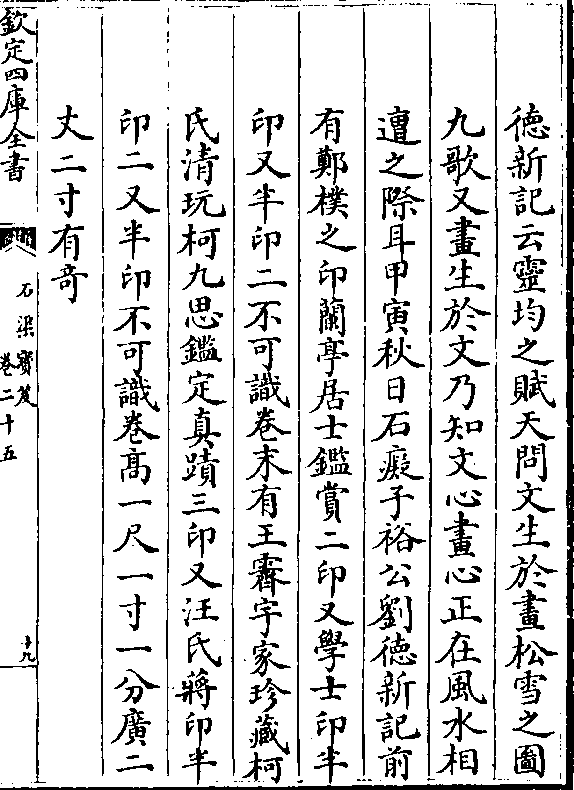 德新記云靈均之賦天問文生於畫松雪之圖
九歌又畫生於文乃知文心畫心正在風水相
遭之際耳甲寅秋日石癡子裕公劉德新記前
有鄭樸之印蘭亭居士鑑賞二印又學士印半
印又半印二不可識卷末有王霽宇家珍藏柯
氏清玩柯九思鑑定真蹟三印又汪氏蔣印半
印二又半印不可識卷高一尺一寸一分廣二
丈二寸有奇
欽定四庫全書
石渠寶笈
卷二十五
十九